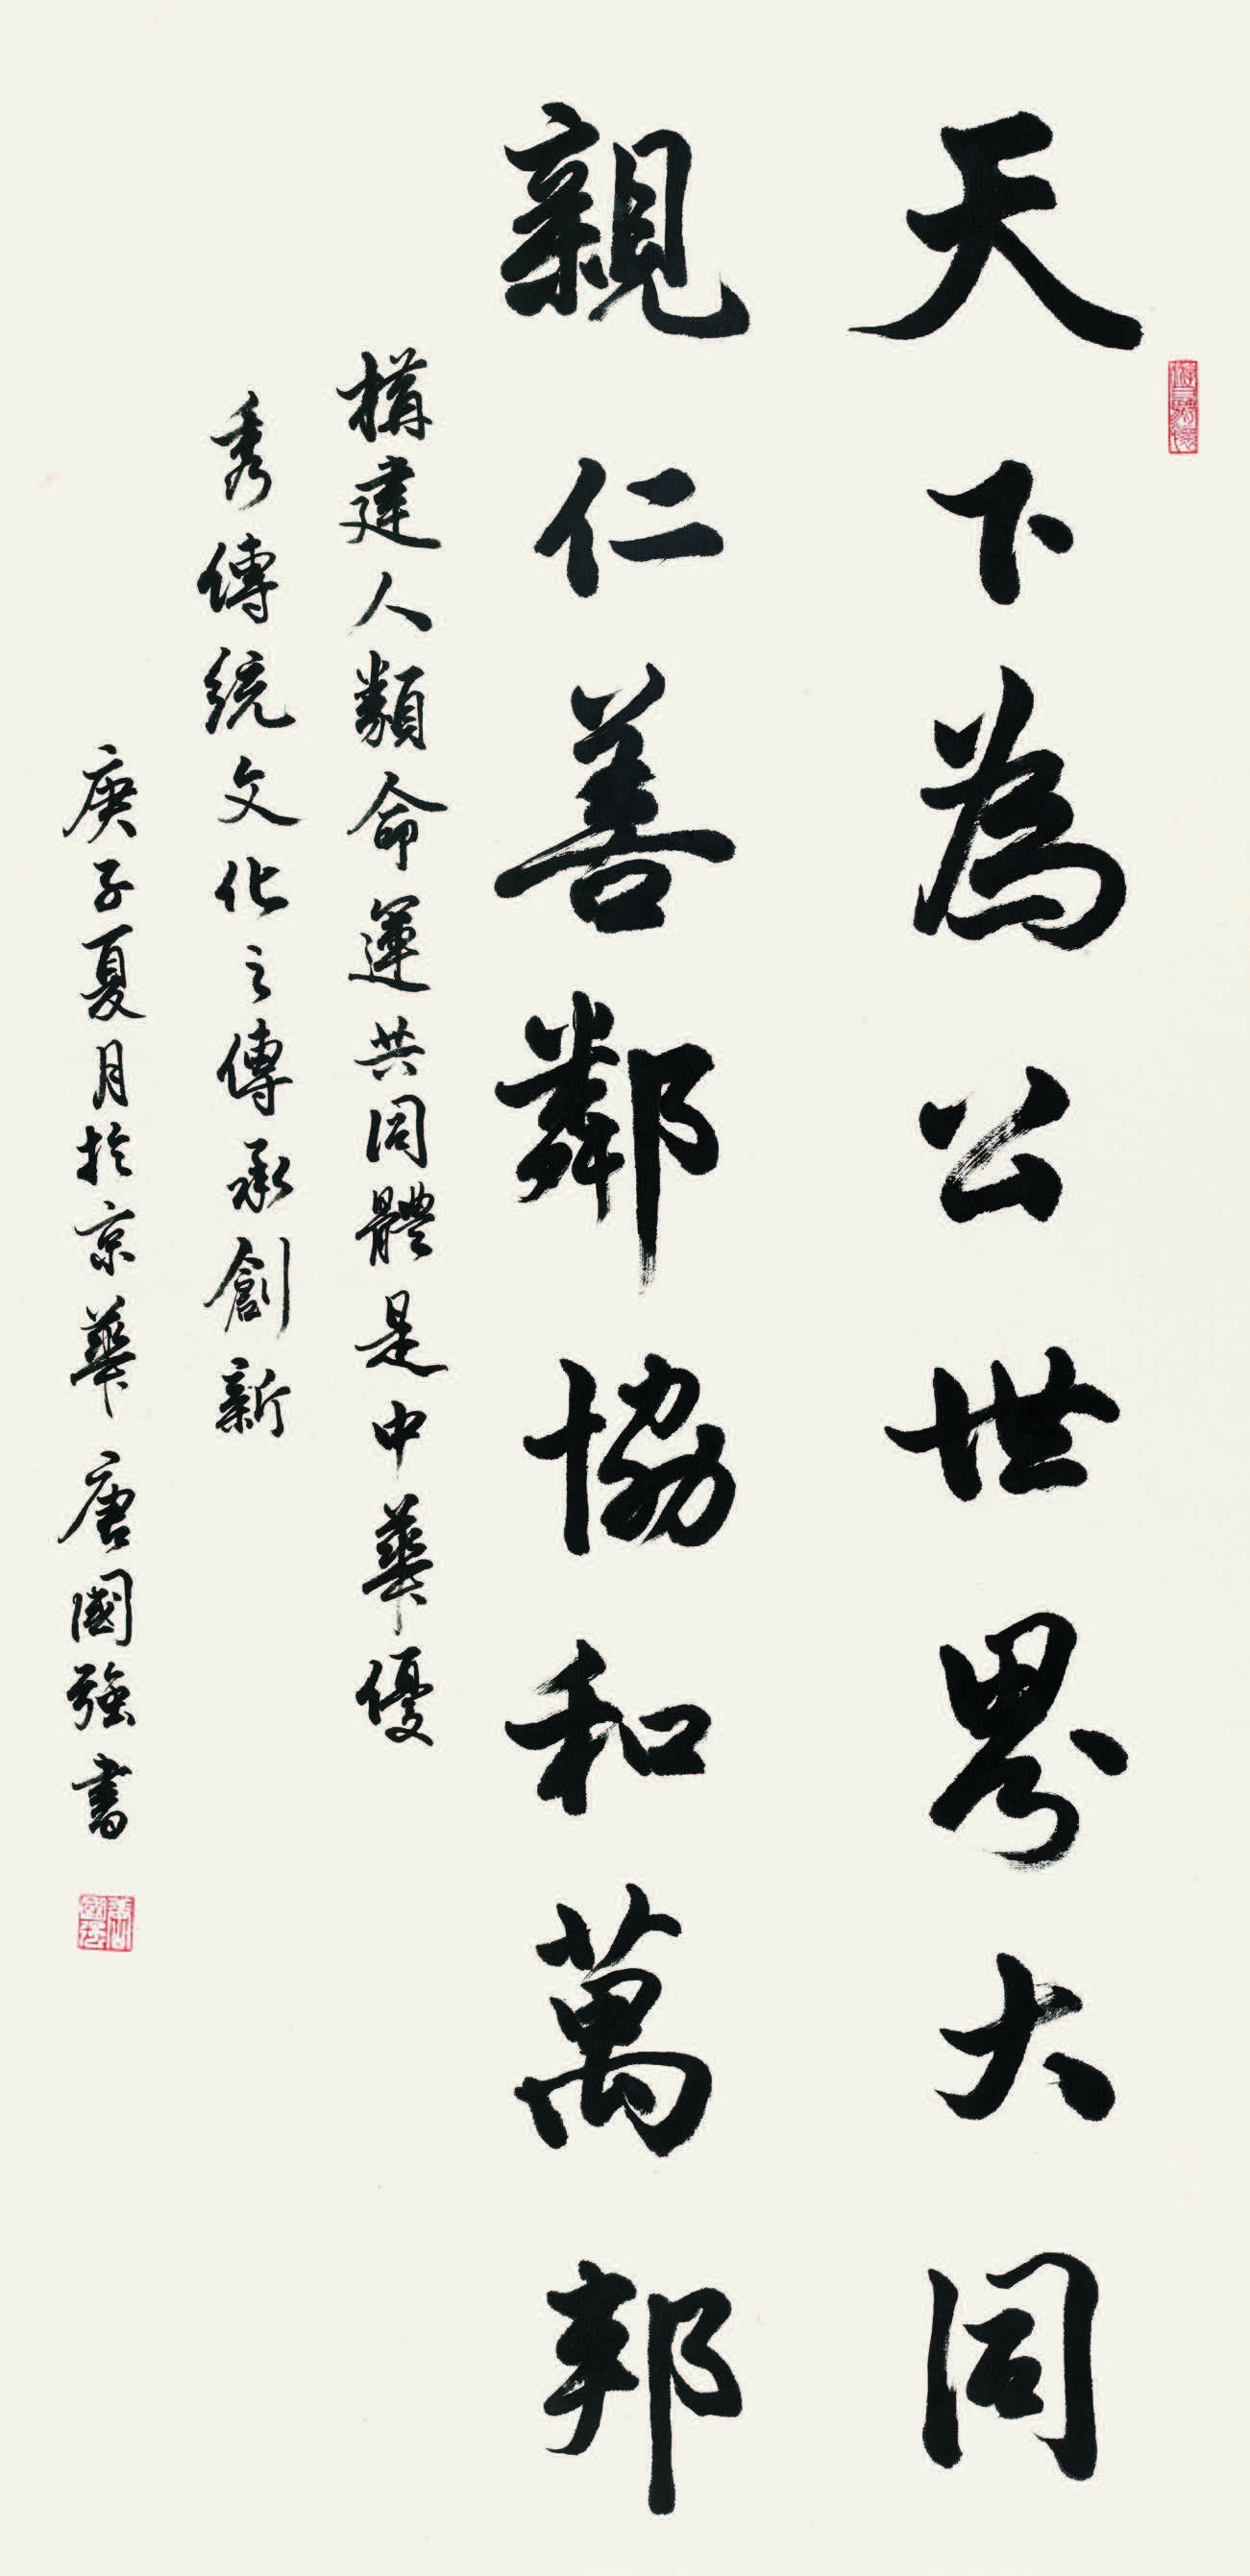 天下為公世界大同
親仁善鄰協和萬邦
構建人類命運共同體是中華優
秀傳統文化之傳承創新
庚子夏月於京華 唐國強書